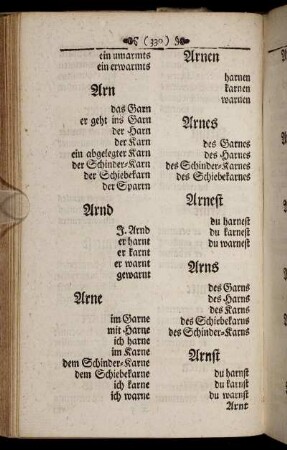 (330)
ein unwarmts
ein erwarmts
Arn
das Garn
er geht ins Garn
der Harn
der Karn
ein abgelegter Karn
der Schinder-Karn
der Schiebekarn
der Sparrn
Arnd
J. Arnd
er harnt
er karnt
er warnt
gewarnt
Arne
im Garne
mit Harne
ich harne
im Karne
dem Schinder-Karne
dem Schiebekarne
ich karne
ich warne
Arnen
harnen
karnen
warnen
Arnes
des Garnes
des Harnes
des Schinder-Karnes
des Schiebekarnes
Arnest
du harnest
du karnest
du warnest
Arns
des Garns
des Harns
des Karns
des Schiebekarns
des Schinder-Karns
Arnst
du harnst
du karnst
du warnst
Arnt